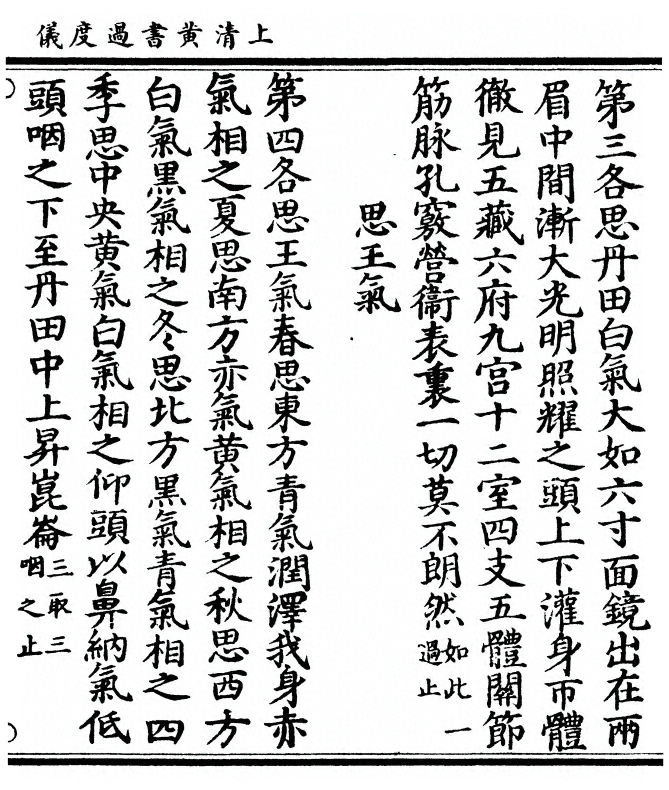 上清黄書過度儀
第三各思丹田白氣大如六寸面鏡出在兩
眉中間漸大光明照耀之頭上下灌身帀體
徹見五藏六府九宫十二室四支五體關節
筋脉孔竅營衞表裏一切莫不朗然如此一過止
思王氣
第四各思王氣春思東方青氣潤澤我身赤
氣相之夏思南方亦氣黄氣相之秋思西方
白氣黑氣相之冬思北方黑氣青氣相之四
季思中央黄氣白氣相之仰頭以鼻納氣低
頭咽之下至丹田中上昇崑崙三取三咽之止